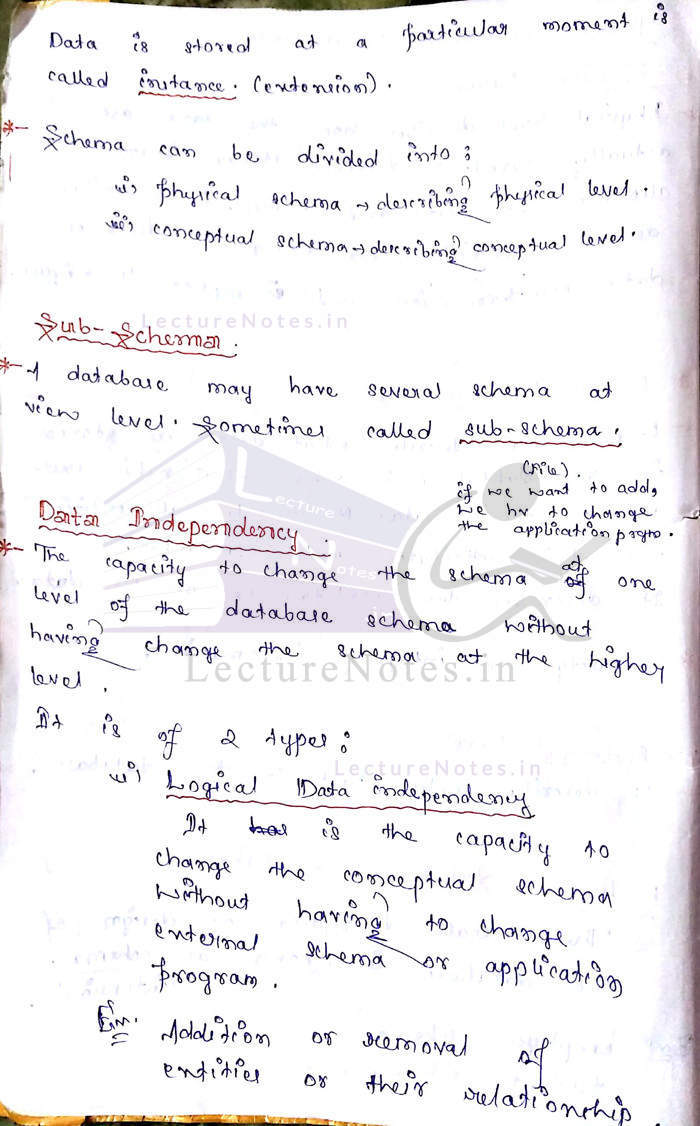 Data is stored at a particular moment is
called instance. (extension).
Schema can be divided into:
(i) physical schema → describing physical level.
(ii) conceptual schema → describing conceptual level.
LectureNotes.in
Sub-Schema.
A database may have several schema at
view level. Sometimes called sub-schema.
(file).
if we want to add,
we hv to change
the application progrm.
Lecture
Notes
.in
Data Independency.
The capacity to change the schema at one
level of the database schema without
having change the schema at the higher
level.
LectureNotes.in
It is of 2 types:
LectureNotes.in
(i) Logical Data independency
It is the capacity to
change the conceptual schema
without having to change
external schema or application
program.
Ex. Addition or removal of
entities or their relationship.